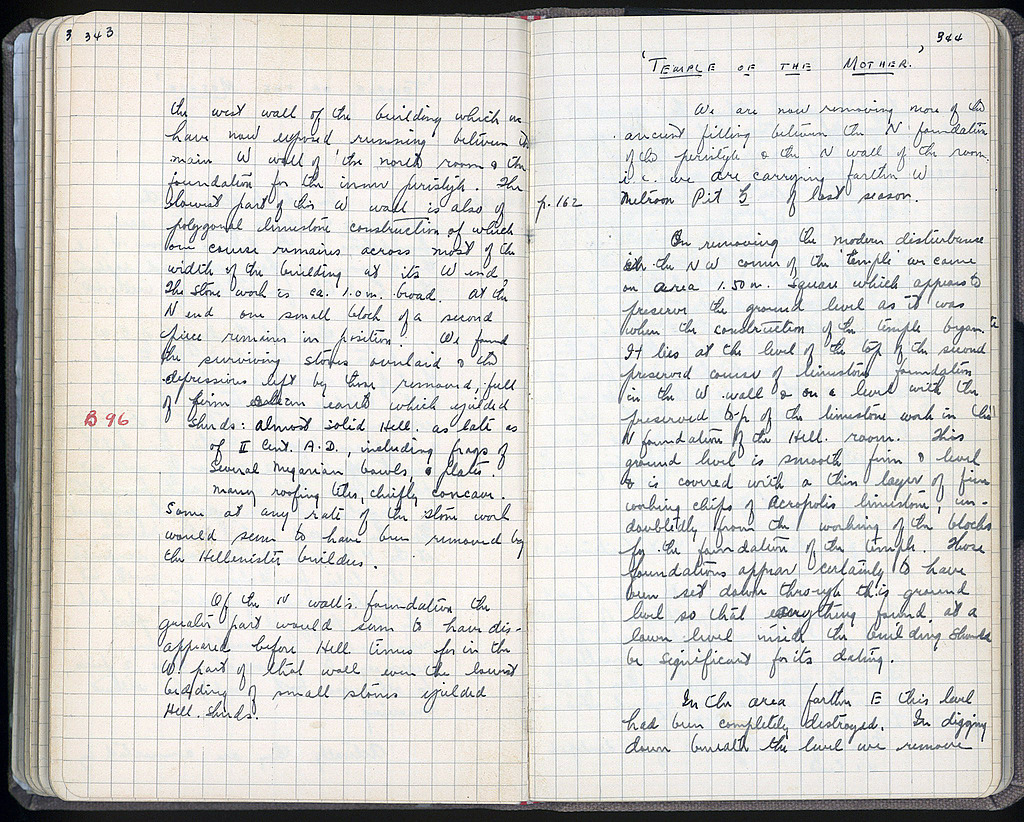 3 343
the west wall of the building which we
have now exposed running between the
main W wall of 'the north room & the
foundation for the inner peristyle. The
lowest part of this W wall is also of
polygonal limestone construction of which
one course remains across most of the
width of the building at its W end.
The stone work is ca. 1.0 m. broad. At the
N end one small block of a second
piece remains in position. We found
the surviving stones overlaid & the
depressions left by those removed, full
of firm earth which yielded
B 96
Sherds: almost solid Hell. as late as
of II Cent. A.D., including frags of
several Megarian bowls, & plates.
many roofing tiles, chiefly concave.
Some at any rate of the stone work
would seem to have been removed by
the Hellenistic builders.
Of the N wall's foundation the
greater part would seem to have dis-
appeared before Hell times for in the
W. part of that wall even the lowest
bedding of small stones yielded
Hell. sherds.
344
'TEMPLE OF THE MOTHER.'
We are now removing more of the
ancient filling between the N foundation
of the peristyle & the N wall of the room.
i.e. we are carrying farther W
p. 162
Metroon Pit 5 of last season.
On removing the modern disturbance
in the NW corner of the 'temple' we came
on area 1.50 m. square which appears to
preserve the ground level as it was
when the construction of the temple began.
It lies at the level of the top of the second
preserved course of limestone foundation
in the W wall & on a level with the
preserved top of the limestone work in the
N foundation of the Hell. room. This
ground level is smooth firm & level
& is covered with a thin layer of fine
working chips of Acropolis limestone, un-
doubtedly from the working of the blocks
for the foundation of the temple. These
foundations appear certainly to have
been set down through this ground
level so that everything found at a
lower level inside the building should
be significant for its dating.
In the area farther E this level
had been completely destroyed. In digging
down beneath the level we remove